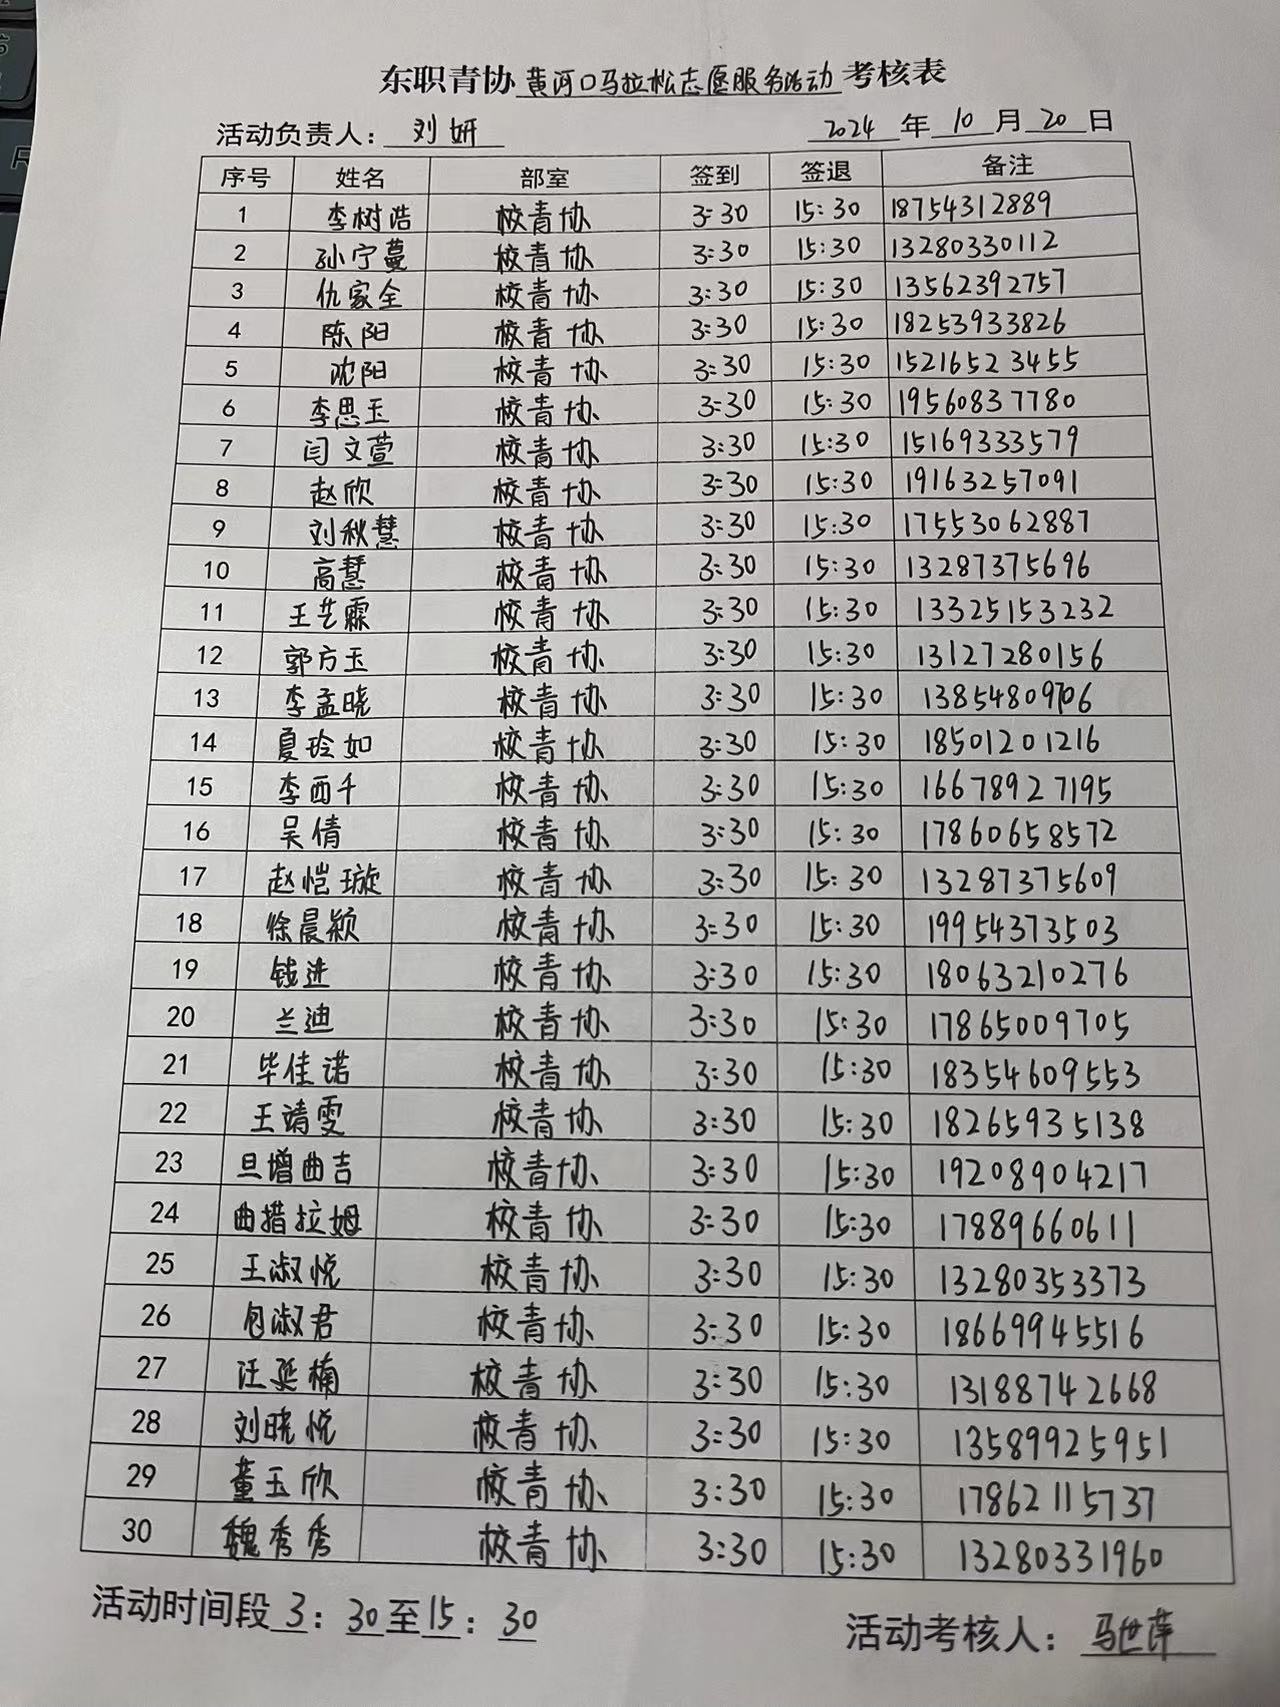 东职青协黄河口马拉松志愿服务活动考核表
活动负责人：刘妍 2024年10月20日
序号 姓名 部室 签到 签退 备注
1 李树浩 校青协 3:30 15:30 18754312889
2 孙宁蔓 校青协 3:30 15:30 13280330112
3 仇家全 校青协 3:30 15:30 13562392757
4 陈阳 校青协 3:30 15:30 18253933826
5 沈阳 校青协 3:30 15:30 15216523455
6 李思玉 校青协 3:30 15:30 19560837780
7 闫文萱 校青协 3:30 15:30 15169333579
8 赵欣 校青协 3:30 15:30 19163257091
9 刘秋慧 校青协 3:30 15:30 17553062887
10 高慧 校青协 3:30 15:30 13287375696
11 王艺霖 校青协 3:30 15:30 13325153232
12 郭方玉 校青协 3:30 15:30 13127280156
13 李孟晓 校青协 3:30 15:30 13854809706
14 夏玲如 校青协 3:30 15:30 18501201216
15 李西千 校青协 3:30 15:30 16678927195
16 吴倩 校青协 3:30 15:30 17860658572
17 赵恺璇 校青协 3:30 15:30 13287375609
18 徐晨颖 校青协 3:30 15:30 19954373503
19 钱进 校青协 3:30 15:30 18063210276
20 兰迪 校青协 3:30 15:30 17865009705
21 毕佳诺 校青协 3:30 15:30 18354609553
22 王靖雯 校青协 3:30 15:30 18265935138
23 旦增曲吉 校青协 3:30 15:30 19208904217
24 曲措拉姆 校青协 3:30 15:30 17889660611
25 王淑悦 校青协 3:30 15:30 13280353373
26 包淑君 校青协 3:30 15:30 18669945516
27 汪延楠 校青协 3:30 15:30 13188742668
28 刘晓悦 校青协 3:30 15:30 13589925951
29 董玉欣 校青协 3:30 15:30 17862115737
30 魏秀秀 校青协 3:30 15:30 13280331960
活动时间段3：30至15：30
活动考核人：马世萍